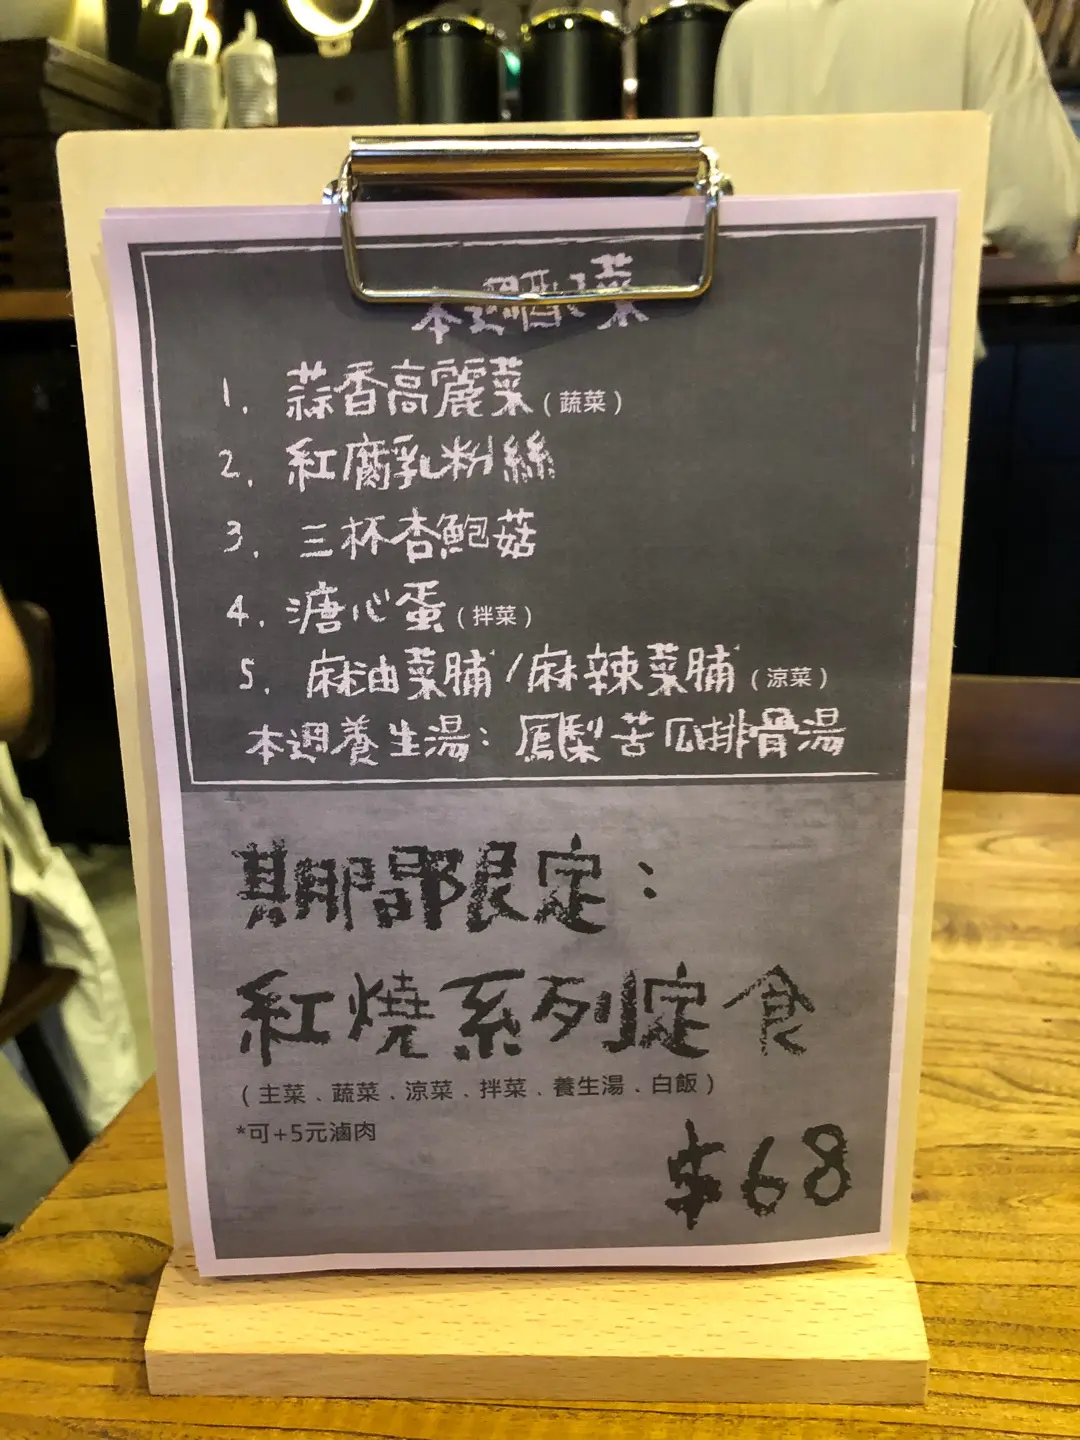 本週酷菜
1. 蒜香高麗菜(蔬菜)
2. 紅腐乳粉絲
3. 三杯杏鮑菇
4. 溏心蛋(拌菜)
5. 麻油菜脯/麻辣菜脯(涼菜)
本週養生湯: 鳳梨苦瓜排骨湯
期間限定:
紅燒系列定食
(主菜﹑蔬菜﹑涼菜﹑拌菜﹑養生湯﹑白飯)
*可+5元滷肉
$68